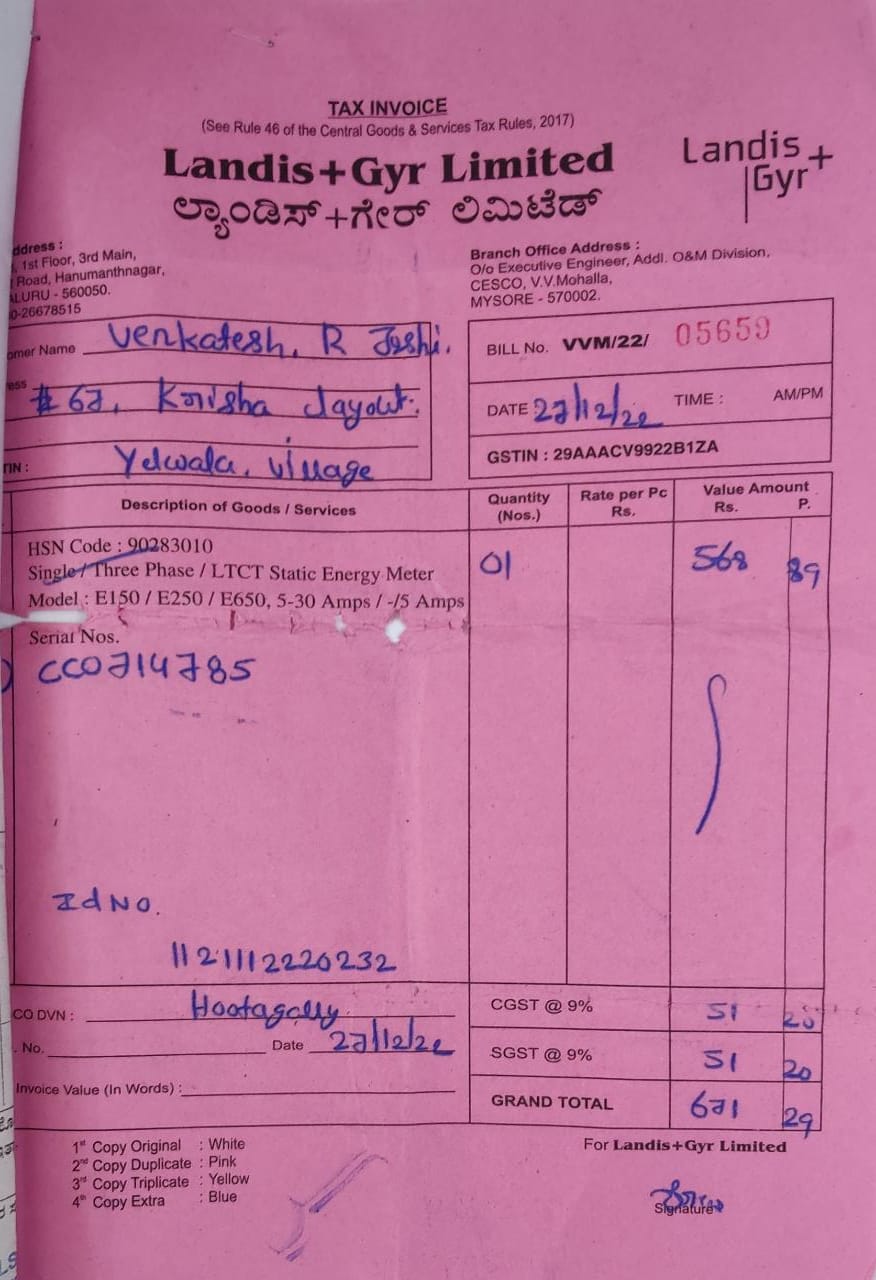 TAX INVOICE
(See Rule 46 of the Central Goods & Services Tax Rules, 2017)
Landis+Gyr Limited
ಲ್ಯಾಂಡಿಸ್+ಗೇರ್ ಲಿಮಿಟೆಡ್
Landis+
Gyr
ddress :
, 1st Floor, 3rd Main,
Road, Hanumanthnagar,
LURU - 560050.
0-26678515
Branch Office Address :
O/o Executive Engineer, Addl. O&M Division,
CESCO, V.V.Mohalla,
MYSORE - 570002.
omer Name Venkatesh. R Joshi.
ess # 67, Krisha Layout.
TIN : Yelwala, Village
BILL No. VVM/22/ 05659
DATE 27/12/22 TIME : AM/PM
GSTIN : 29AAACV9922B1ZA
Description of Goods / Services Quantity (Nos.) Rate per Pc Rs. Value Amount Rs. P.
HSN Code : 90283010
Single / Three Phase / LTCT Static Energy Meter 01 568 89
Model : E150 / E250 / E650, 5-30 Amps / -/5 Amps
Serial Nos.
CC0714785
Id No.
1121112220232
CO DVN : Hootagally
. No. Date 27/12/22
Invoice Value (In Words) :
CGST @ 9% 51 20
SGST @ 9% 51 20
GRAND TOTAL 671 29
1st Copy Original : White
2nd Copy Duplicate : Pink
3rd Copy Triplicate : Yellow
4th Copy Extra : Blue
For Landis+Gyr Limited
Signature